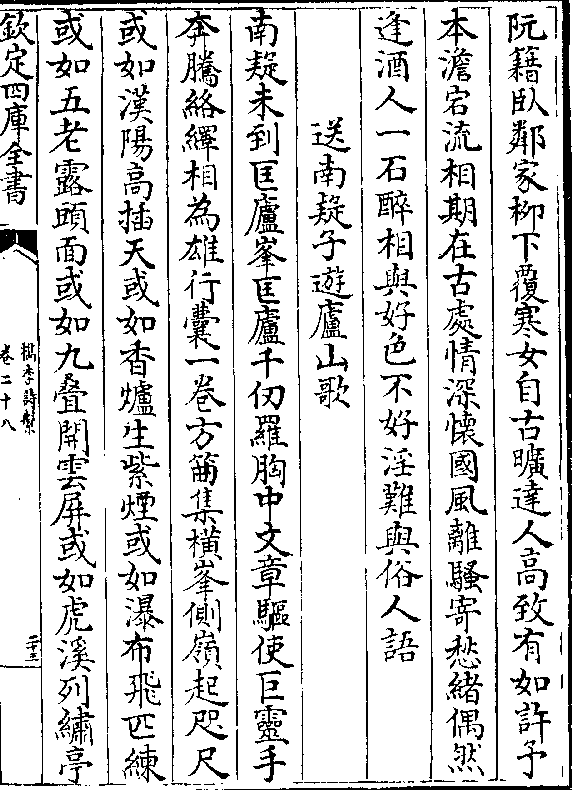 阮籍臥鄰家柳下覆寒女自古曠達人高致有如許予
本澹宕流相期在古處情深懷國風離騷寄愁緒偶然
逢酒人一石醉相與好色不好淫難與俗人語
送南疑子遊廬山歌
南疑未到匡廬峯匡廬千仞羅胸中文章驅使巨靈手
李騰絡繹相為雄行囊一卷方筩集橫峯側嶺起咫尺
或如漢陽高插天或如香爐生紫煙或如瀑布飛匹練
或如五老露頭面或如九疊開雲屏或如虎溪列繡亭
欽定四庫全書
檇李詩繫
卷二十八
二十三